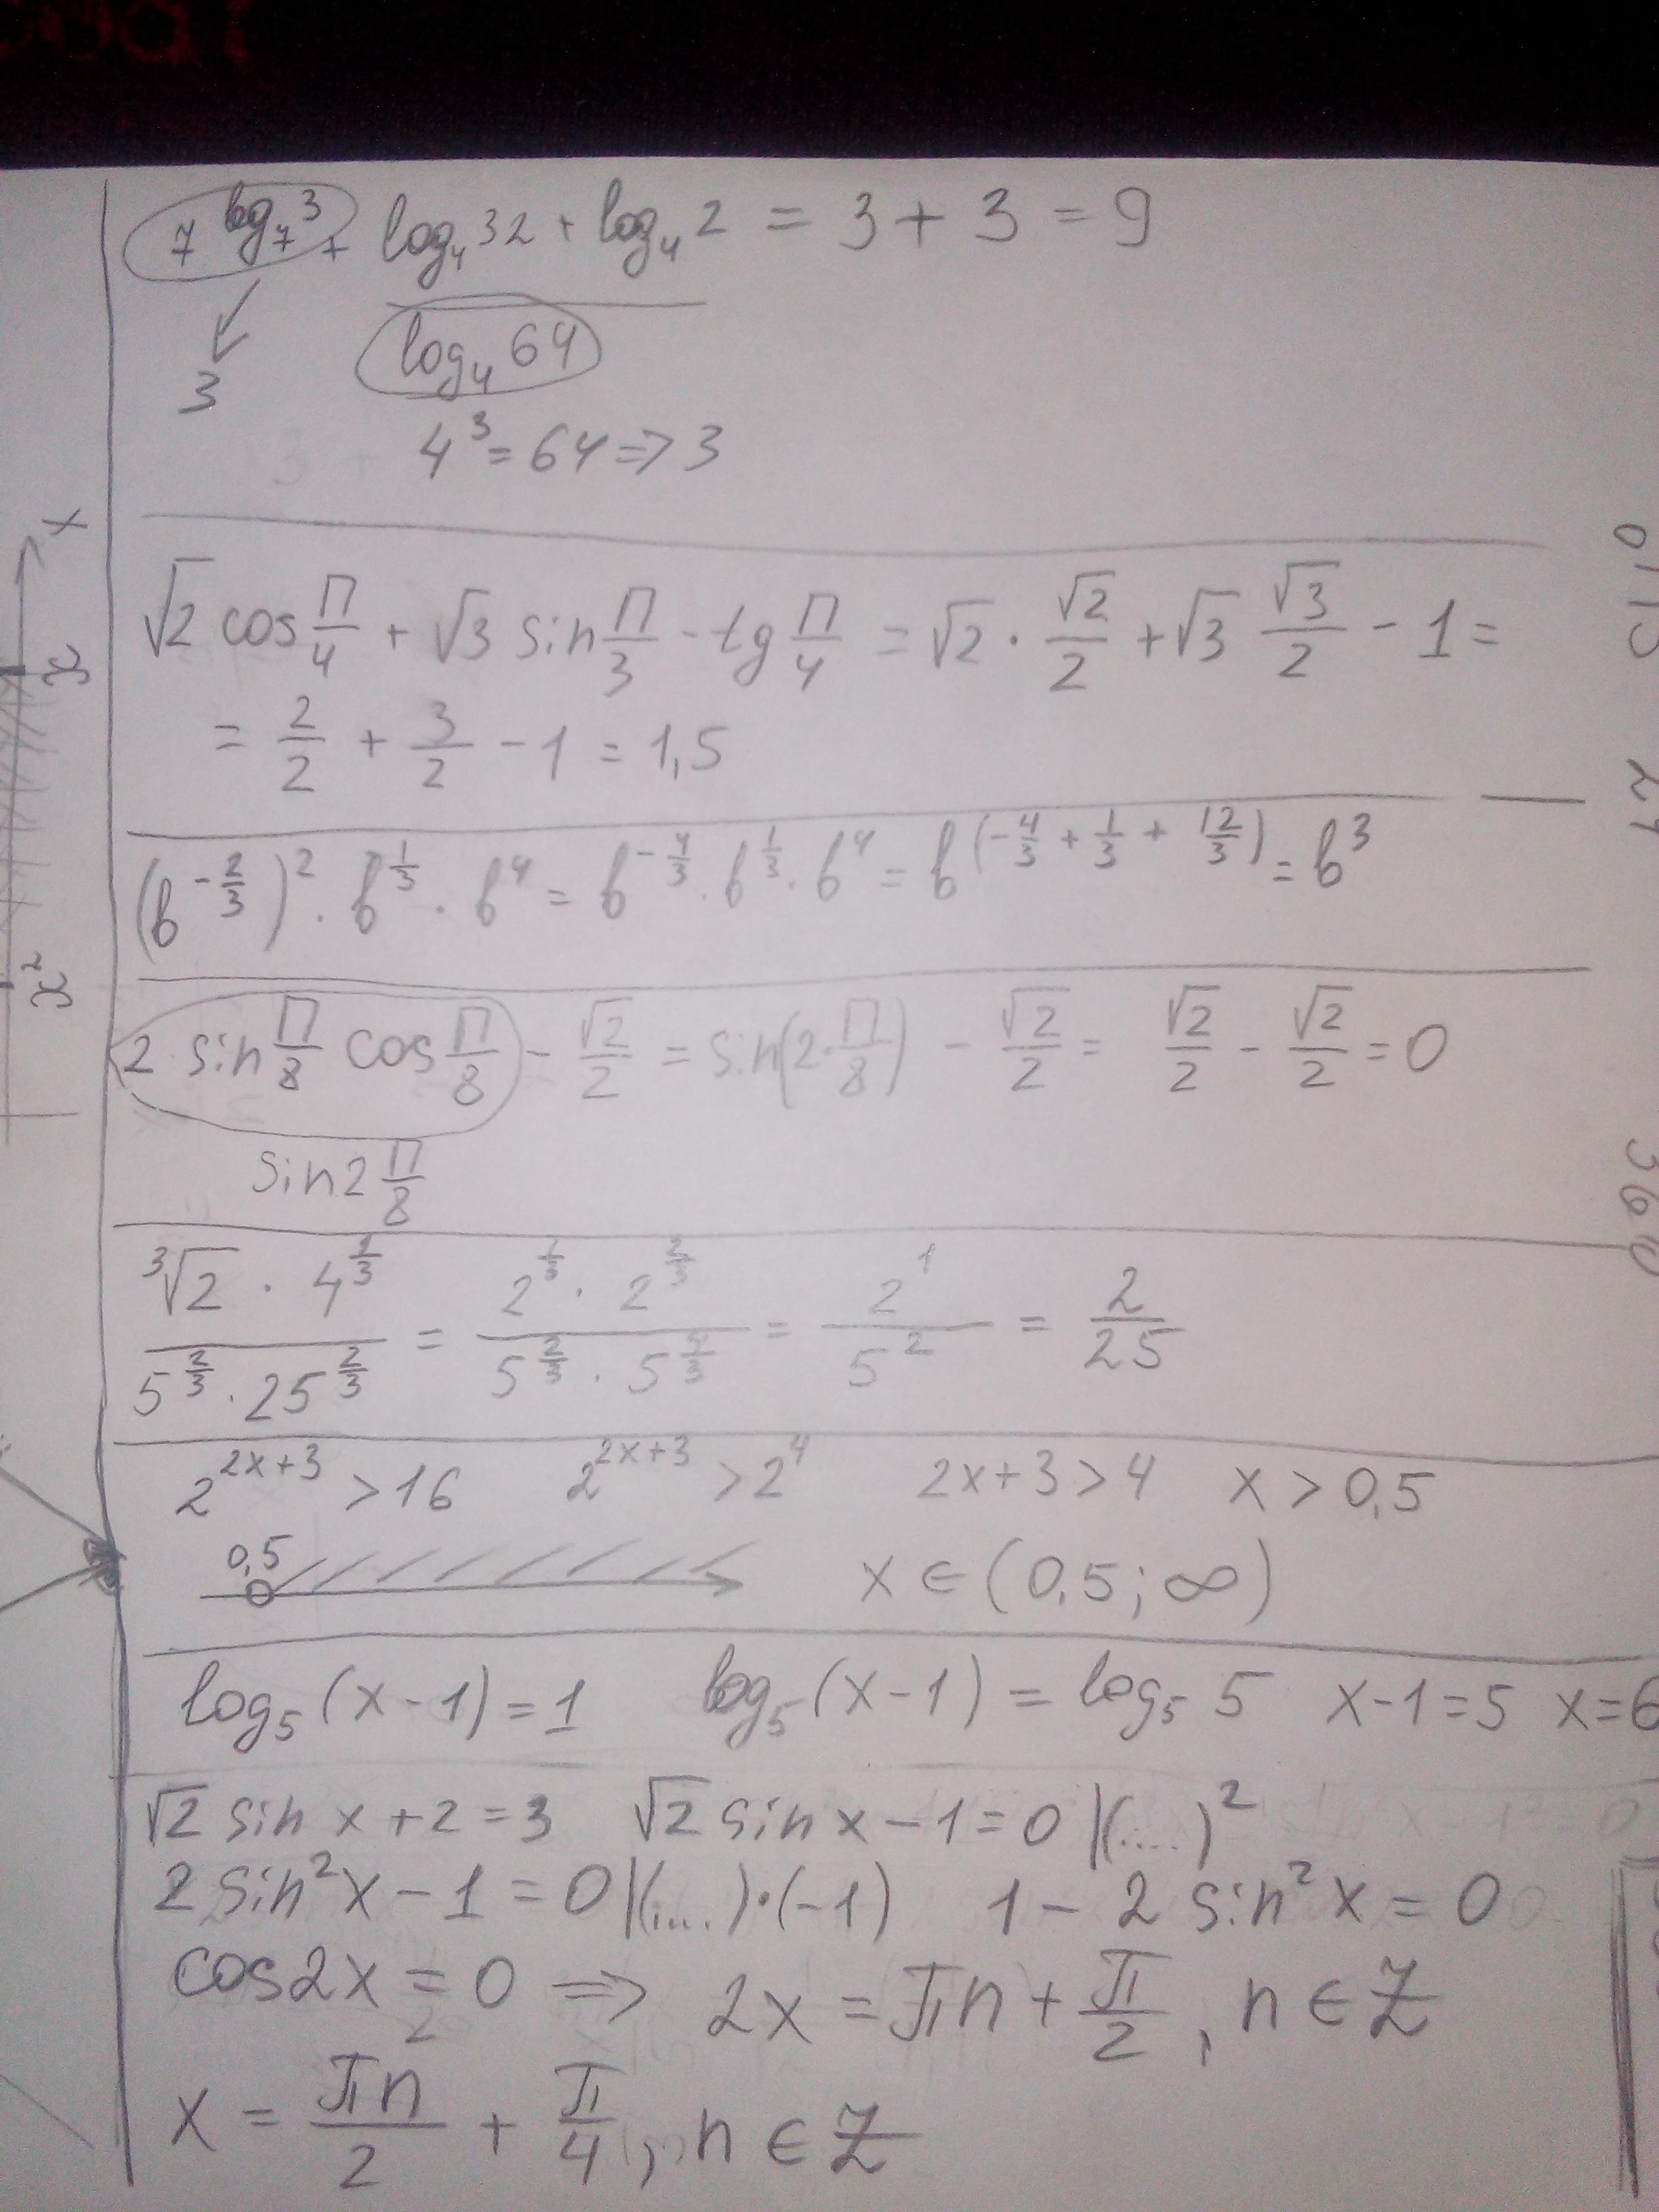 7^{log_7 3} + log_4 32 + log_4 2 = 3 + 3 = 9
3
log_4 64
4^3 = 64 => 3
√2 cos П/4 + √3 sin П/3 - tg П/4 = √2 · √2/2 + √3 √3/2 - 1 =
= 2/2 + 3/2 - 1 = 1,5
(b^{-2/3})^2 · b^{1/3} · b^4 = b^{-4/3} · b^{1/3} · b^4 = b^{(-4/3 + 1/3 + 12/3)} = b^3
2 sin П/8 cos П/8 - √2/2 = sin(2·П/8) - √2/2 = √2/2 - √2/2 = 0
sin2 П/8
(∛2 · 4^{1/3})/(5^{2/3} · 25^{2/3}) = (2^{1/3} · 2^{2/3})/(5^{2/3} · 5^{4/3}) = 2^1/5^2 = 2/25
2^{2x+3} > 16 2^{2x+3} > 2^4 2x+3 > 4 x > 0,5
0,5 x ∈ (0,5; ∞)
log_5 (x-1) = 1 log_5 (x-1) = log_5 5 x-1=5 x=6
√2 sin x + 2 = 3 √2 sin x - 1 = 0 |(....)^2
2 sin^2 x - 1 = 0 |(....)·(-1) 1 - 2 sin^2 x = 0
cos2x = 0 => 2x = πn + π/2, n ∈ Z
x = πn/2 + π/4, n ∈ Z
x
x
x^2
360